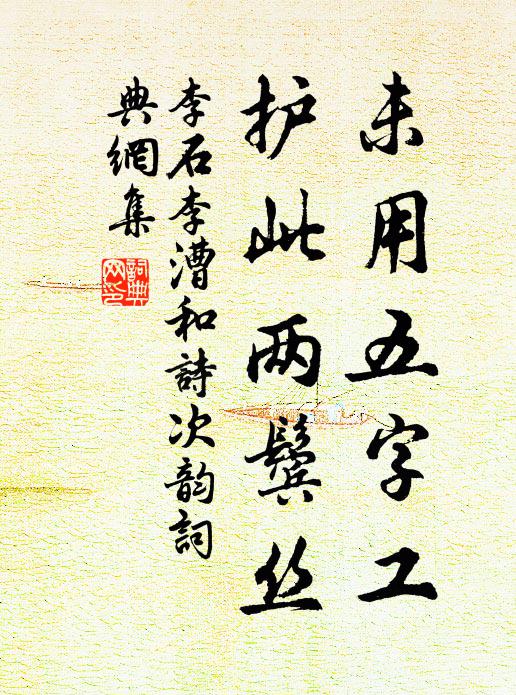 未用五字工
护此两鬓丝
李石李漕和詩次韵詞
典網集
詞典网印